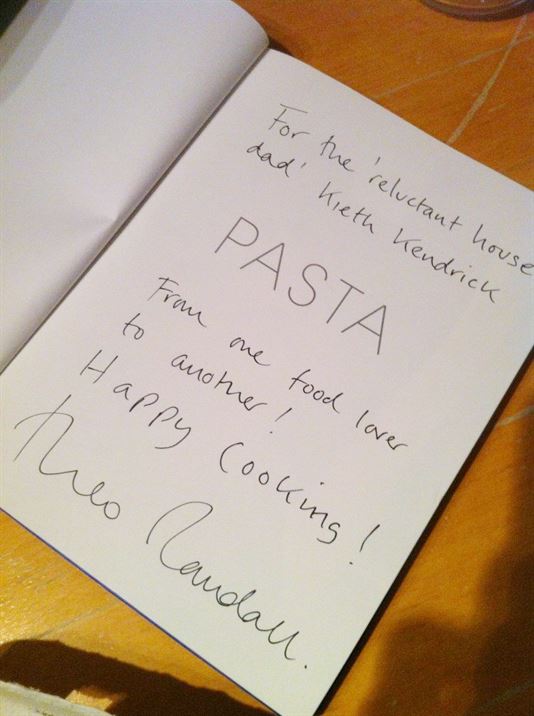 For the 'reluctant house
dad' Kieth Kendrick
PASTA
From one food lover
to another!
Happy Cooking!
Theo Randall.